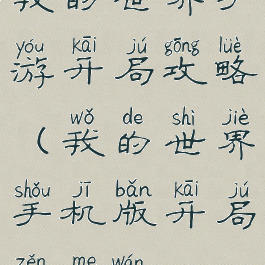 我的世界手
yóu kāi jú gōng lüè
游开局攻略
wǒ de shì jiè
（我的世界
shǒu jī bǎn kāi jú
手机版开局
zěn me wán